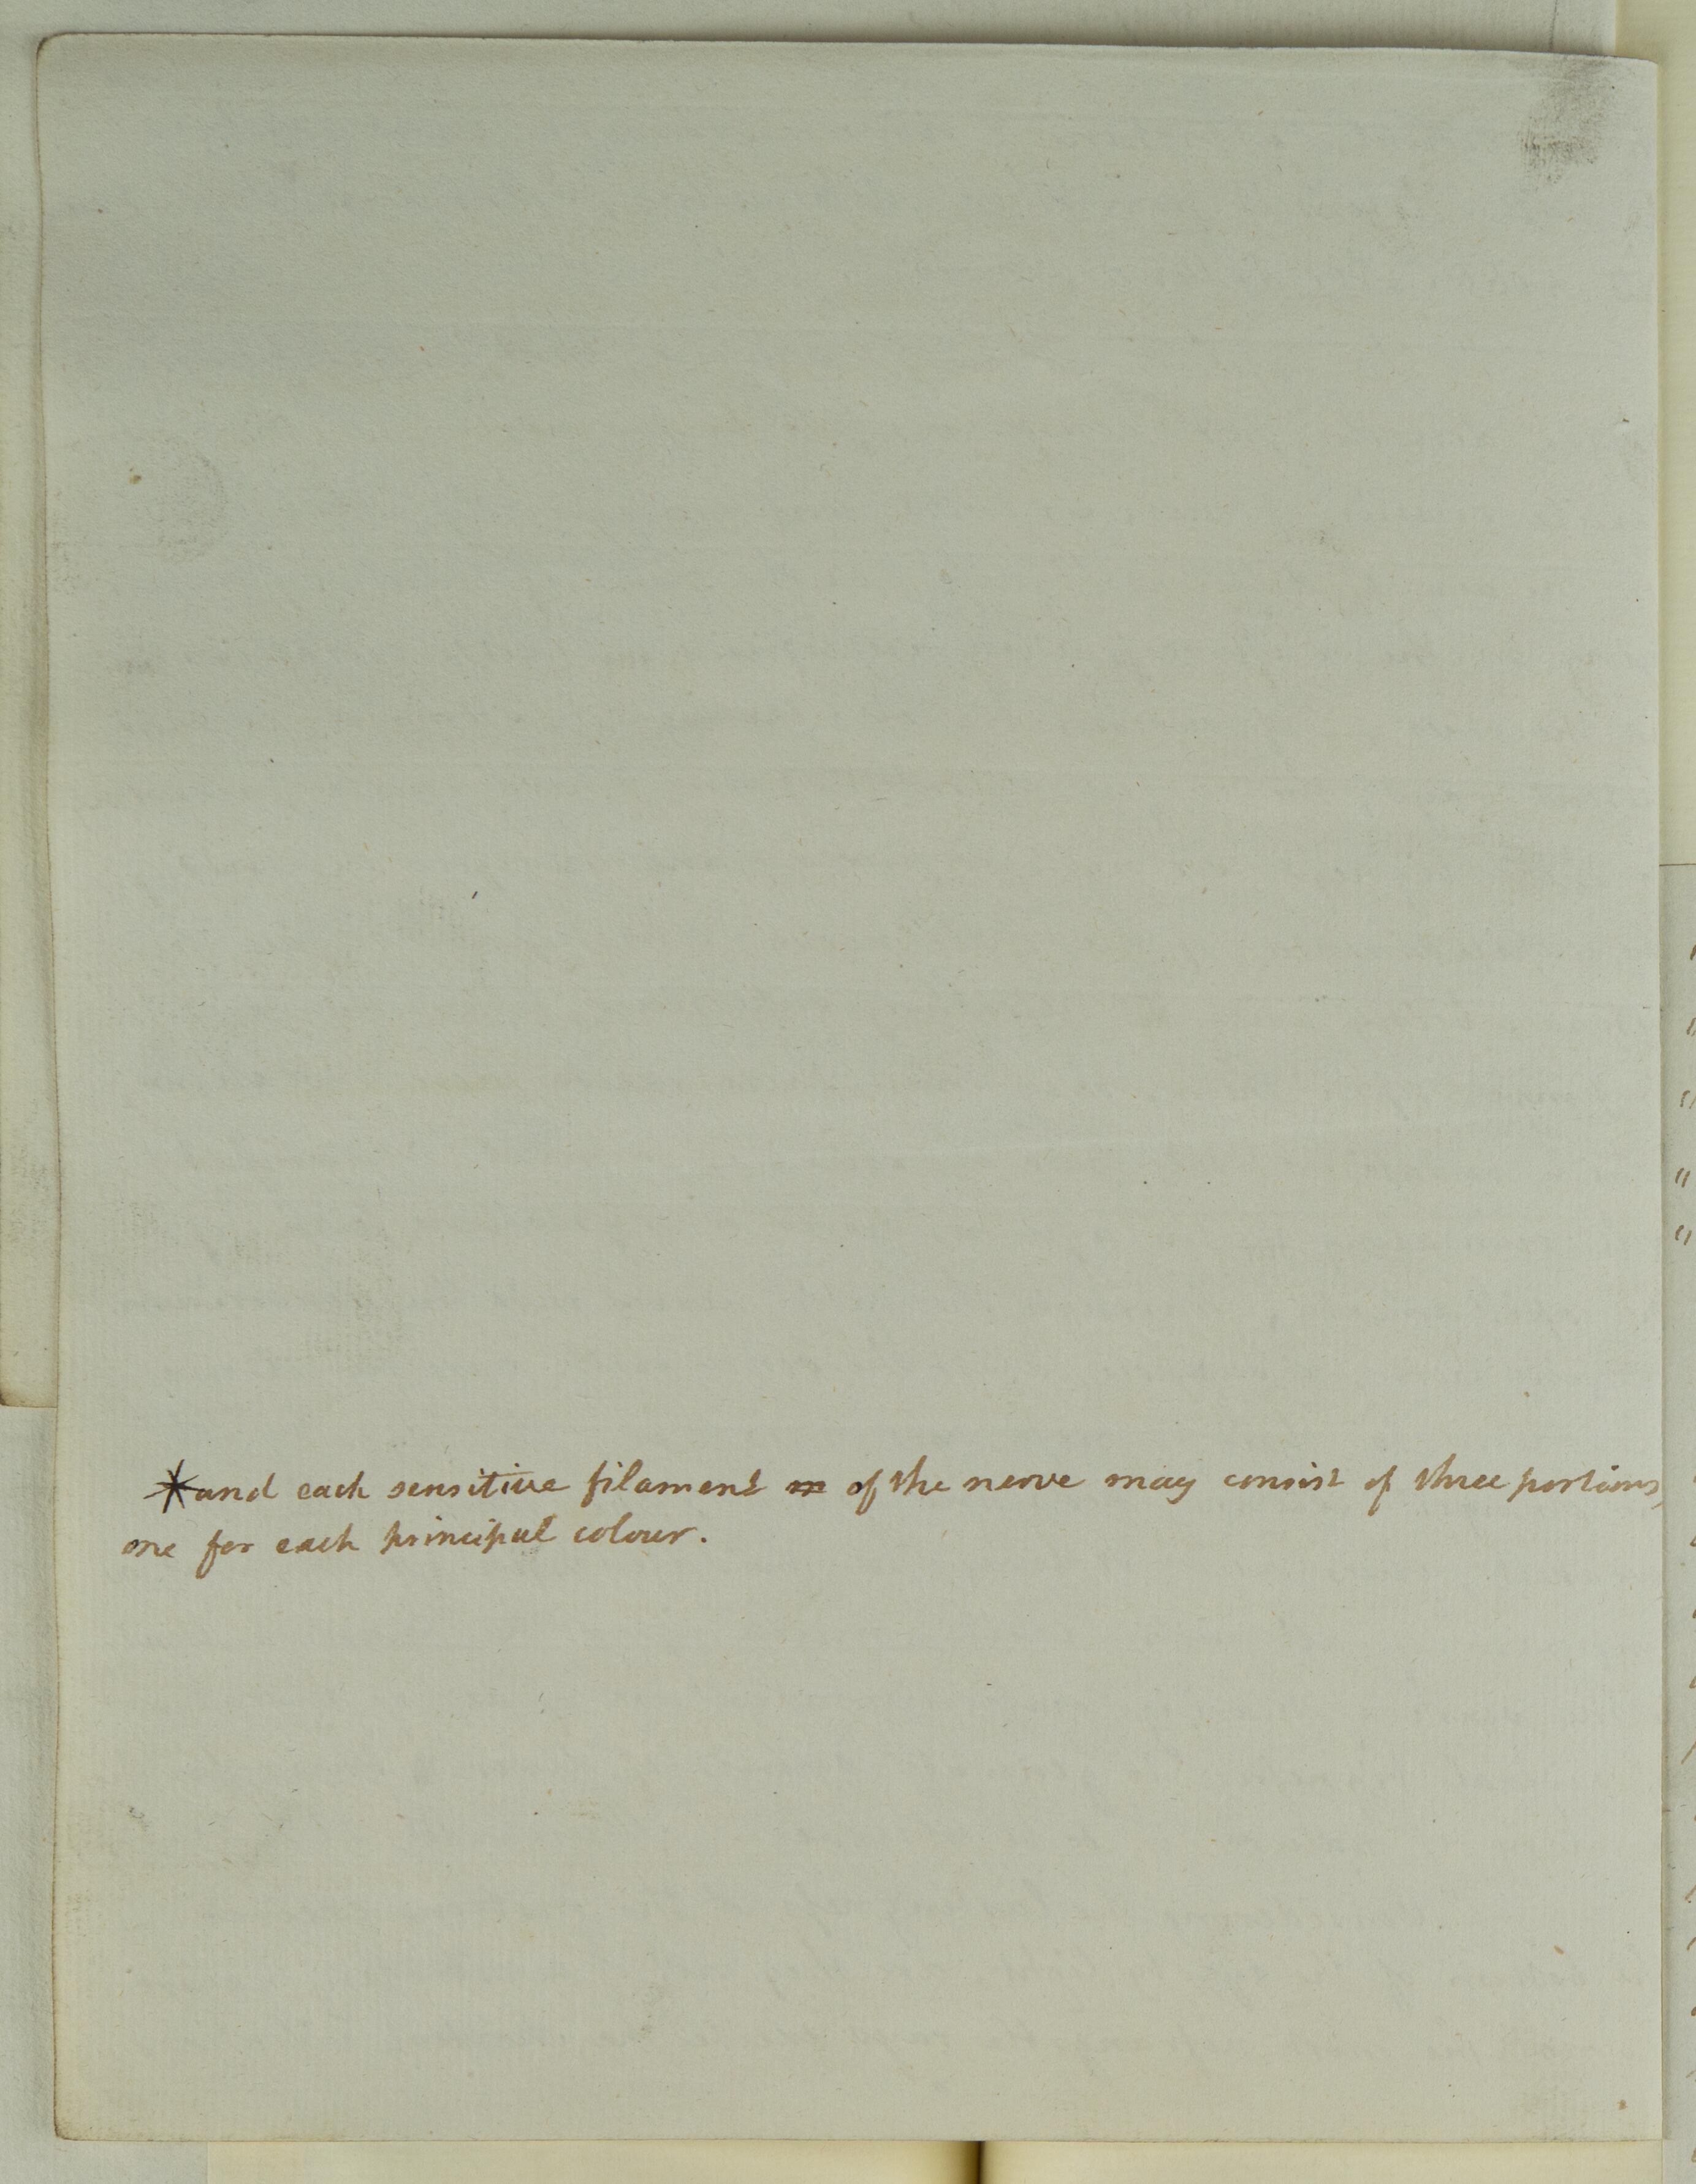 *and each sensitive filament m of the nerve may consist of three portions,
one for each principal colour.